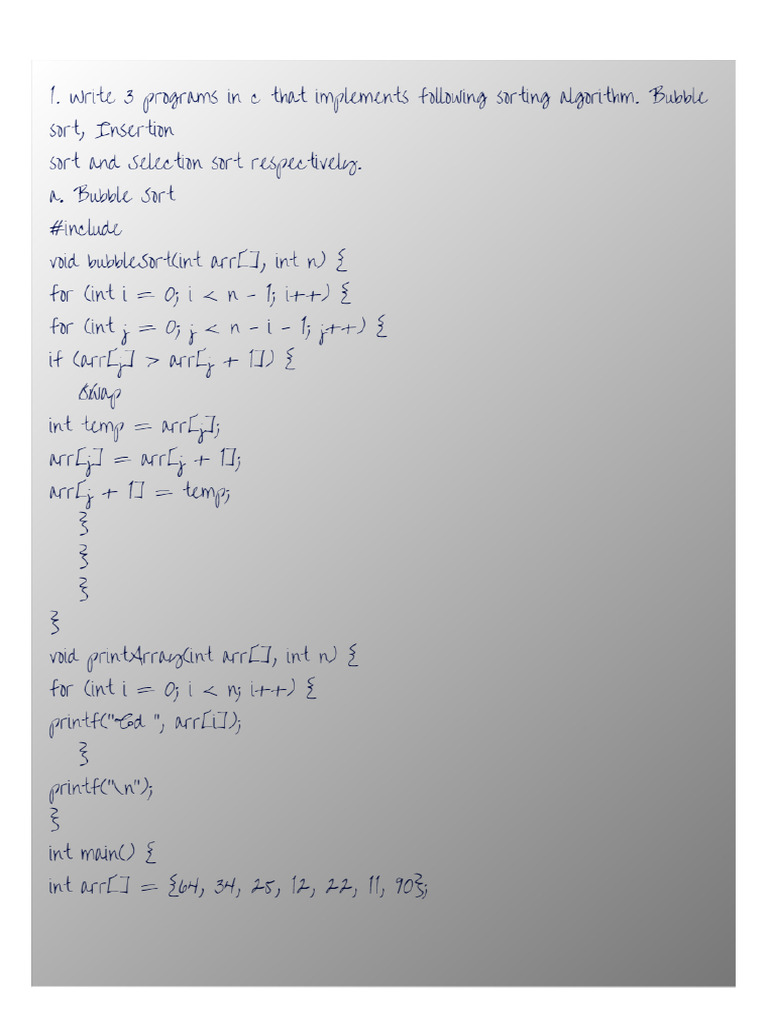 1. Write 3 programs in c that implements following sorting algorithm. Bubble
sort, Insertion
sort and Selection sort respectively.
a. Bubble Sort
#include
void bubbleSort(int arr[], int n) {
for (int i = 0; i < n - 1; i++) {
for (int j = 0; j < n - i - 1; j++) {
if (arr[j] > arr[j + 1]) {
swap
int temp = arr[j];
arr[j] = arr[j + 1];
arr[j + 1] = temp;
}
}
}
}
void printArray(int arr[], int n) {
for (int i = 0; i < n; i++) {
printf("%d ", arr[i]);
}
printf("\n");
}
int main() {
int arr[] = {64, 34, 25, 12, 22, 11, 90};